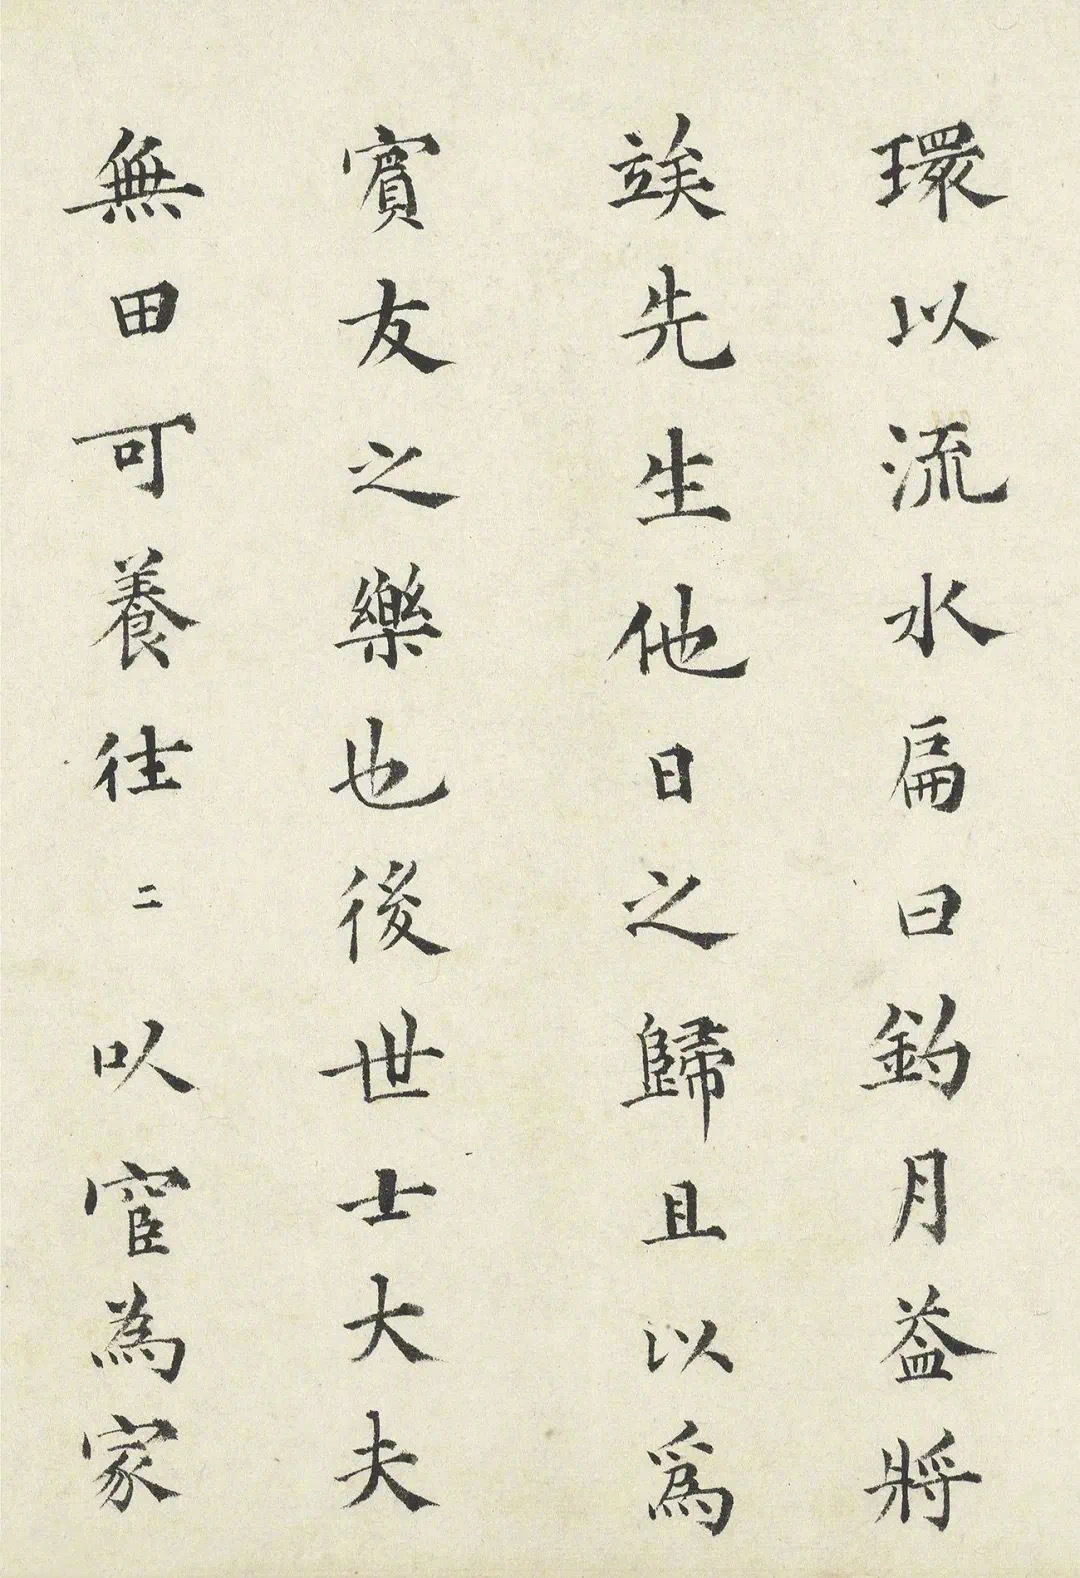 環以流水扁曰釣月益將
竢先生他日之歸且以爲
賓友之樂也後世士大夫
無田可養往二以宦為家